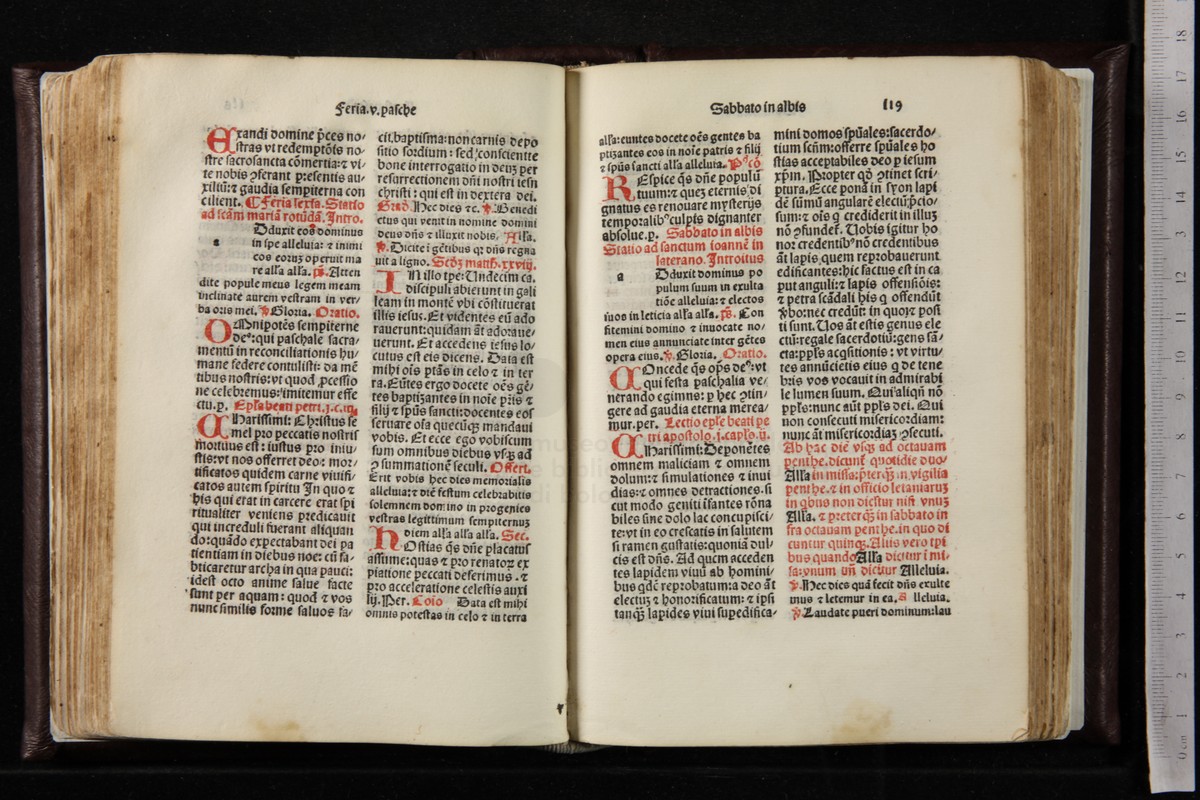 Feria.v.pasche
Exandi domine p̄ces no⸗
stras vt redemptōis no⸗
stre sacrosancta cōmertia: ⁊ vi⸗
te nobis ꝯferant p̄sentis au⸗
xiliū: ⁊ gaudia sempiterna con
cilient. ¶ Feria sexta. Statio
ad scam̄ mariā rotūdā. Intro.
Dduxit eos dominus
a in spe alleluia: ⁊ inimi
cos eorum operuit ma
re alla alla. ps. Atten
dite popule meus legem meam
inclinate aurem vestram in ver⸗
ba oris mei. ℣ Gloria. Oratio.
Omnipotēs sempiterne
de⁹: qui paschale sacra⸗
mentū in reconciliationis hu⸗
mane federe contulisti: da mē
tibus nostris: vt quod ꝓfessio
ne celebremus: imitemur effe
ctu. p. Epl'a beati petri .j. c. iij.
Charissimi: Christus se
mel pro peccatis nostris
mortuus est: iustus pro iniu⸗
stis: vt nos offerret deo: mor⸗
tificatos quidem carne viuifi⸗
catos autem spiritu In quo ⁊
his qui erat in carcere erāt spi
ritualiter veniens predicauit
qui increduli fuerant aliquan
do: quādo expectabant dei pa
tientiam in diebus noe: cū fa⸗
bricaretur archa in qua pauci:
idest octo anime salue facte
sunt per aquam: quod ⁊ vos
nunc similis forme saluos fa⸗
cit. baptisma: non carnis depo
sitio sordium: sed conscientie
bone interrogatio in deum per
resurrectionem dn̄i nostri iesu
christi: qui est in dextera dei.
Grad. Hec dies ⁊c. ℣. Benedi
ctus qui venit in nomine domini
deus dn̄s ⁊ illuxit nobis. Alla.
℣. Dicite ī gētibus qꝫ dn̄s regna
uit a ligno. Scdꝫ matth. xxviij.
In illo tp̄e: Undecim ca.
discipuli abierunt in gali
leam in montē vbi cōstituerat
illis iesus. Et videntes eū ado
rauerunt: quidam āt adoraue⸗
uerunt. Et accedens iesus lo⸗
cutus est eis dicens. Data est
mihi oīs ptās in celo ⁊ in ter
ra. Eūtes ergo docete oēs gē⸗
tes baptizantes in noīe pr̄is ⁊
filij ⁊ sp̄us sancti: docentes eos
seruare oīa quecūqꝫ mandaui
vobis. Et ecce ego vobiscum
sum omnibus diebus vsqꝫ ad
ꝯsummationē seculi. Offert.
Erit vobis hec dies memorialis
alleluia: ⁊ diē festum celebrabitis
solemnem domino in progenies
vestras legittimum sempiternuꝫ
diem alla alla alla. Sec.
Hostias qs̄ dn̄e placatus
assume: quas ⁊ pro renatoꝝ ex
piatione peccati deferimus. ⁊
pro acceleratione celestis auxi
lij. Per. Cōio Data est mihi
omnis potestas in celo ⁊ in terra
Sabbato in albis 119
alla: euntes docete oēs gentes ba
ptizantes eos in noīe patris ⁊ filij
⁊ sp̄us sancti alla alleluia. Pꝰcō
Respice qs̄ dn̄e populū
tuum: ⁊ queꝫ eternis di
gnatus es renouare mysterijs
temporalibꝰ culpis dignanter
absolue. p. Sabbato in albis
Statio ad sanctum ioannē in
laterano. Introitus
a Dduxit dominus po
pulum suum in exulta
tiōe alleluia: ⁊ electos
suos in leticia alla alla. ps. Con
fitemini domino ⁊ inuocate no⸗
men eius annunciate inter gētes
opera eius. ℣. Gloria. Oratio.
Concede qs̄ op̄s de⁹: vt
qui festa paschalia ve⸗
nerando egimus: p hec ꝯtin⸗
gere ad gaudia eterna merea⸗
mur. per. Lectio eple beati pe
tri apostolo. j. caplo. ij.
Charissimi: Deponētes
omnem maliciam ⁊ omnem
dolum: ⁊ simulationes ⁊ inui
dias: ⁊ omnes detractiones. si
cut modo geniti īfantes rōna
biles sine dolo lac concupisci⸗
te: vt in eo crescatis in salutem
si tamen gustatis: quoniā dul⸗
cis est dn̄s. Ad quem acceden
tes lapidem viuū ab homini⸗
bus qdē reprobatum: a deo āt
electuꝫ ⁊ honorificatum: ⁊ ipsi
tanqꝫ lapides viui supedifica⸗
mini domos sp̄uales: sacerdo⸗
tium scm̄: offerre sp̄uales ho
stias acceptabiles deo p iesum
xp̄m. Propter qd̄ ꝯtinet scri⸗
ptura. Ecce ponā in syon lapi
dē sūmū angularē electū: p̄cio⸗
sum: ⁊ oīs q̄ crediderit in illuꝫ
nō ꝯfundet̄. Uobis igitur ho
nor credentibꝰ nō credentibus
āt lapis quem reprobauerunt
edificantes: hic factus est in ca
put anguli: ⁊ lapis offensiōis:
⁊ petra scādali his q̄ offendūt
ꝟbo: nec credūt: in quoꝝ posi
ti sunt. Uos āt estis genus ele
ctū: regale sacerdotiū: gens sā⸗
cta: ppl's acq̄sitionis: vt virtu⸗
tes annūcietis eius q̄ de tene
bris vos vocauit in admirabi
le lumen suum. Qui aliqn̄ nō
ppl's: nunc aūt ppl's dei. Qui
non consecuti misericordiam:
nunc āt misericordiaꝫ ꝯsecuti.
Ab hac die vsqꝫ ad octauam
penthe. dicunt̄ quotidie duo
Alla in missa: pterqꝫ in vigilia
penthe. ⁊ in officio letaniaruꝫ
in qbus non dicitur nisi vnuꝫ
Alla. ⁊ preterqꝫ in sabbato in
fra octauam penthe. in quo di
cuntur quinqꝫ. Aliis vero tpi
bus quando Alla dicitur ī mi⸗
sa: vnum tm̄ dicitur Alleluia.
℣. Hec dies quā fecit dn̄s exulte
mus ⁊ letemur in ea. Alleluia.
℣. Laudate pueri dominum: lau